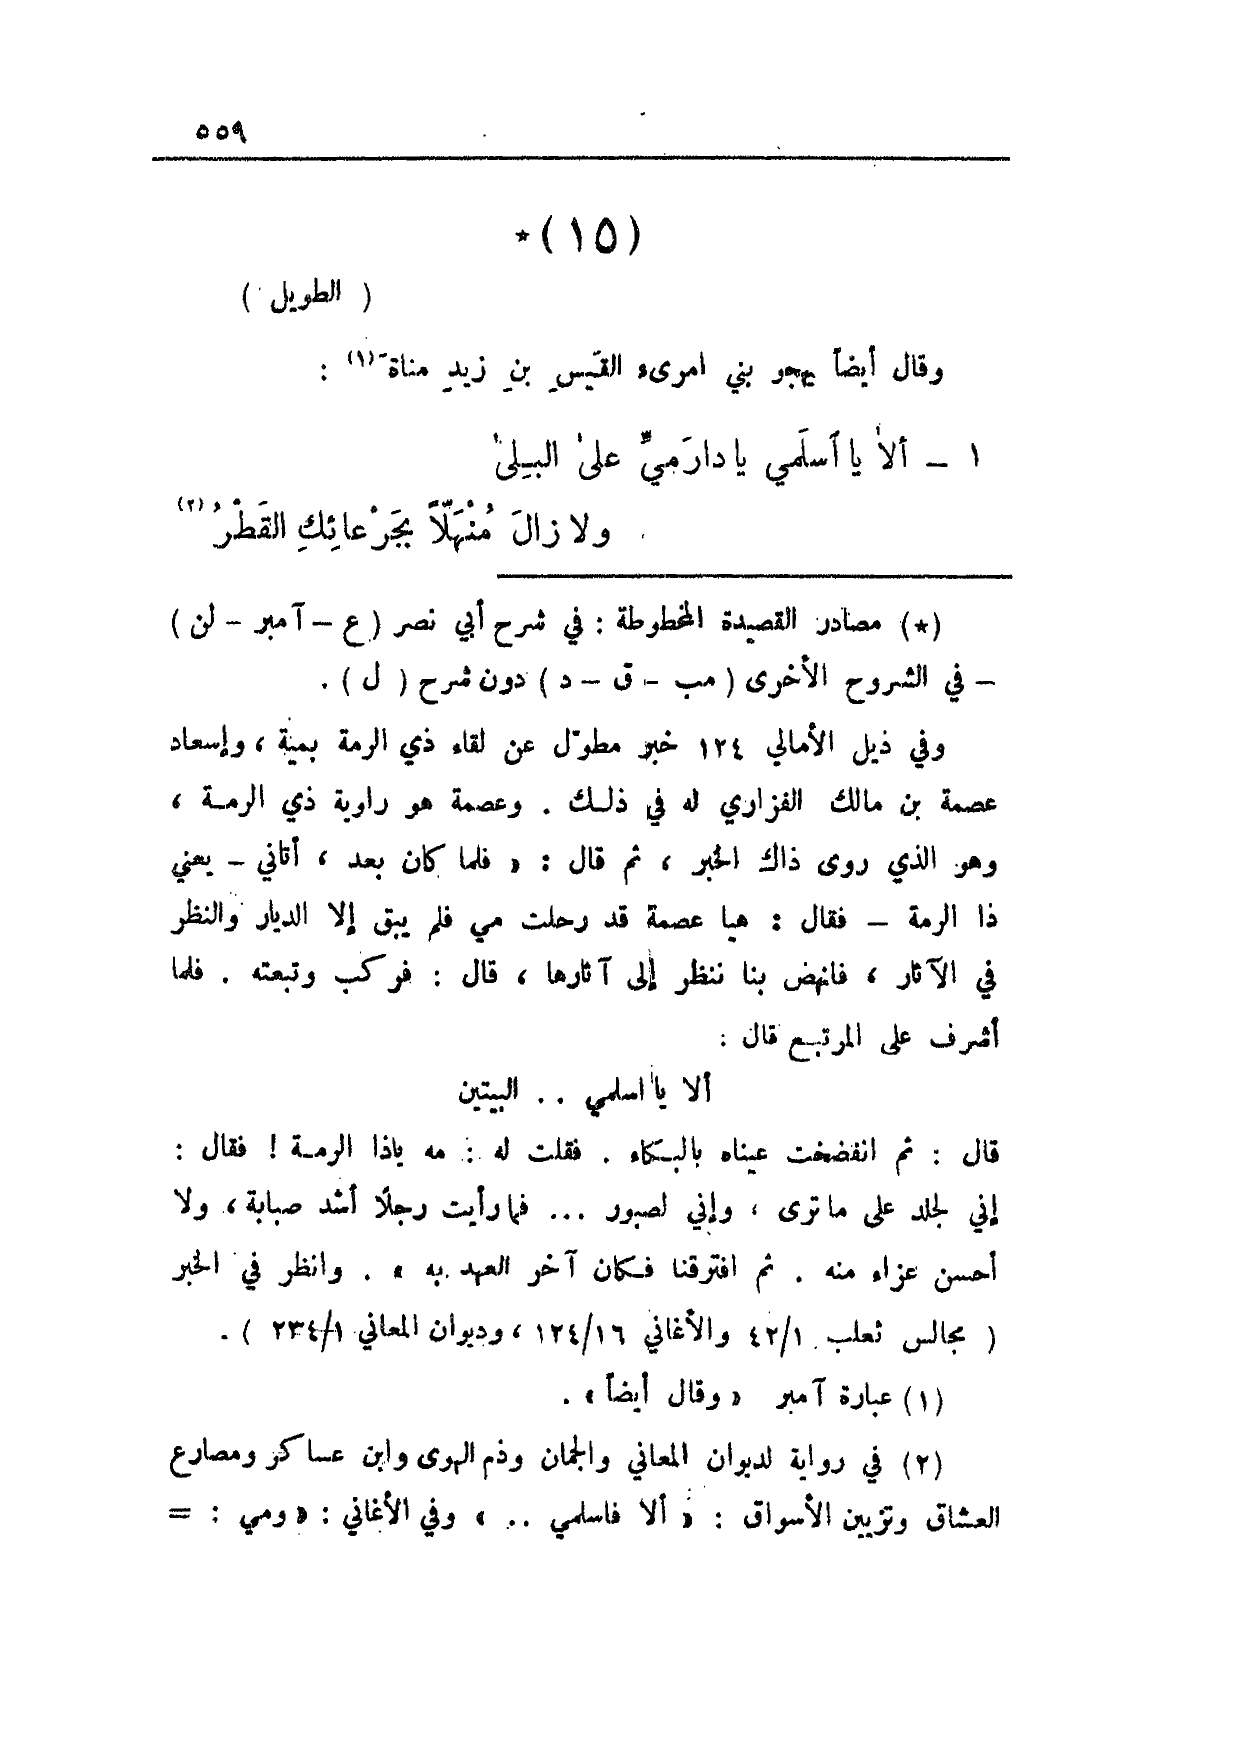 ٥٥٩
(١٥)*
( الطويل )
وقال أيضاً يهجو بني امرىء القَيسِ بنِ زيدِ مناةَ(١) :
١ – ألا يا اَسلَمي يا دارَ ميٍّ على البِلى
ولا زالَ مُنْهَلّاً بجَرْعائِكِ القَطْرُ(٢)
(*) مصادر القصيدة المخطوطة : في شرح أبي نصر ( ع – آمبر – لن )
– في الشروح الأخرى ( مب – ق – د ) دون شرح ( ل ) .
وفي ذيل الأمالي ١٢٤ خبر مطوّل عن لقاء ذي الرمة بمية ، وإسعاد
عصمة بن مالك الفزاري له في ذلك . وعصمة هو راوية ذي الرمة ،
وهو الذي روى ذاك الخبر ، ثم قال : « فلما كان بعد ، أتاني – يعني
ذا الرمة – فقال : هيا عصمة قد رحلت مي فلم يبق إلا الديار والنظر
في الآثار ، فانهض بنا ننظر إلى آثارها ، قال : فركب وتبعته . فلما
أشرف على المرتبع قال :
ألا يا اسلمي .. البيتين
قال : ثم انفضخت عيناه بالبكاء . فقلت له : مه ياذا الرمة ! فقال :
إني لجلد على ما ترى ، وإني لصبور ... فما رأيت رجلًا أشد صبابة ، ولا
أحسن عزاء منه . ثم افترقنا فكان آخر العهد به » . وانظر في الخبر
( مجالس ثعلب ٤٢/١ والأغاني ١٢٤/١٦ ، وديوان المعاني ٢٣٤/١ ) .
(١) عبارة آمبر « وقال أيضاً » .
(٢) في رواية لديوان المعاني والجمان وذم الهوى وابن عساكر ومصارع
العشاق وتزيين الأسواق : « ألا فاسلمي .. » وفي الأغاني : « ومي : =